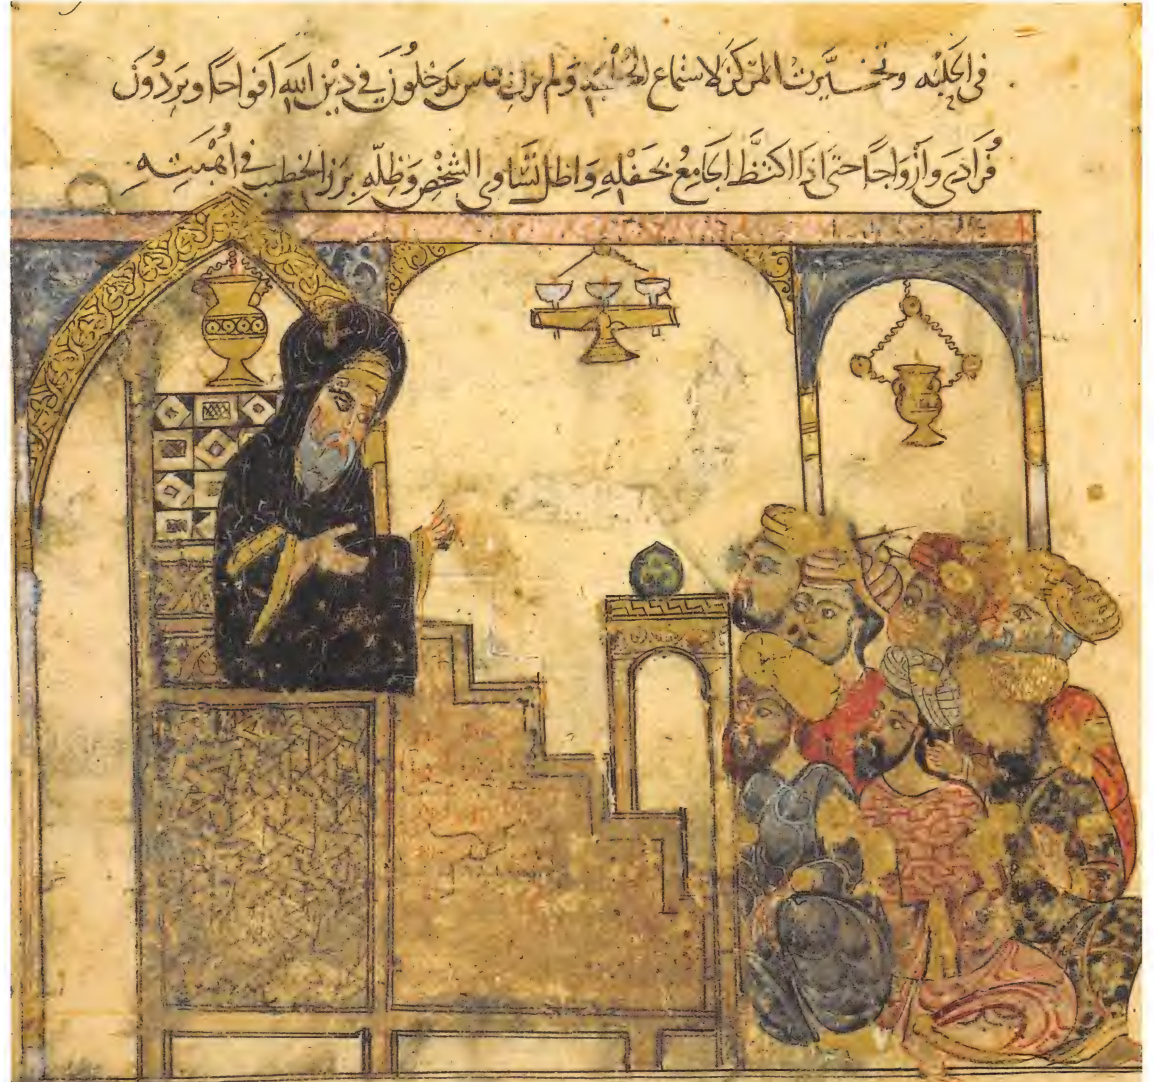 في الحلبه وتخيَّرت المركز لاستماع الخطبه ولم يزل الناس يدخلون في دين الله افواجا ويردون
فُرادى وأزواجًا حتى اذا اكتظَّ الجامعُ بحفله واظل تساوى الشخص وظله برز الخطيب في اُهبته